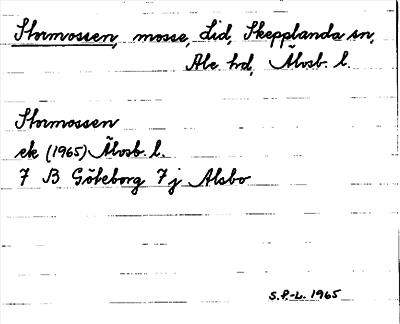 Stormossen, mosse, Lid, Skepplanda sn,
Ale hd, Älvsb. l.
Stormossen
ek (1965) Älvsb. l.
7 B Göteborg 7 j Alsbo
S.F.-L. 1965